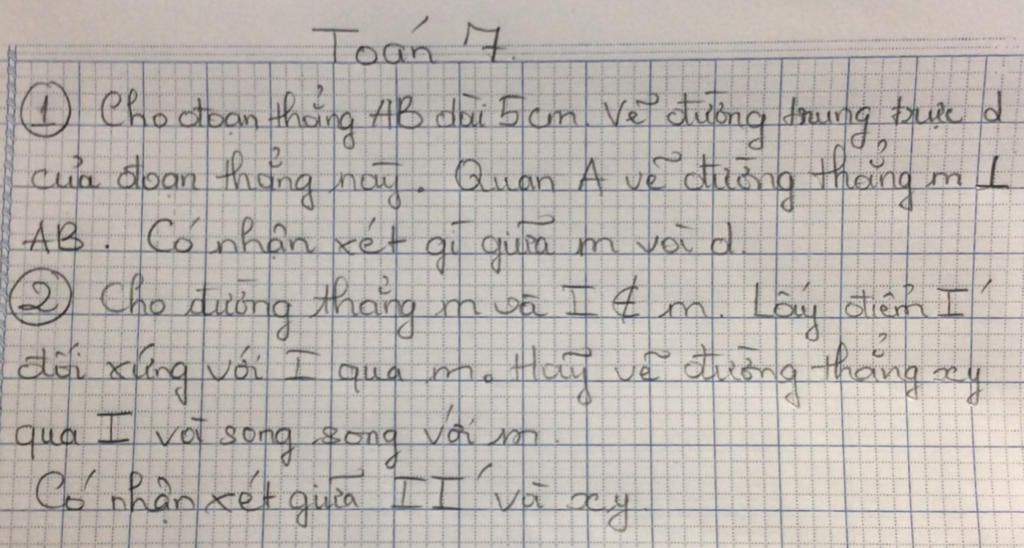 Toán 7.
① Cho đoạn thẳng AB dài 5cm. Vẽ đường trung trực d
của đoạn thẳng này. Quan A vẽ đường thẳng m ⊥
AB. Có nhận xét gì giữa m với d.
② Cho đường thẳng m và I ∉ m. Lấy điểm I'
đối xứng với I qua m. Hãy vẽ đường thẳng xy
qua I và song song với m.
Có nhận xét giữa II' và xy.